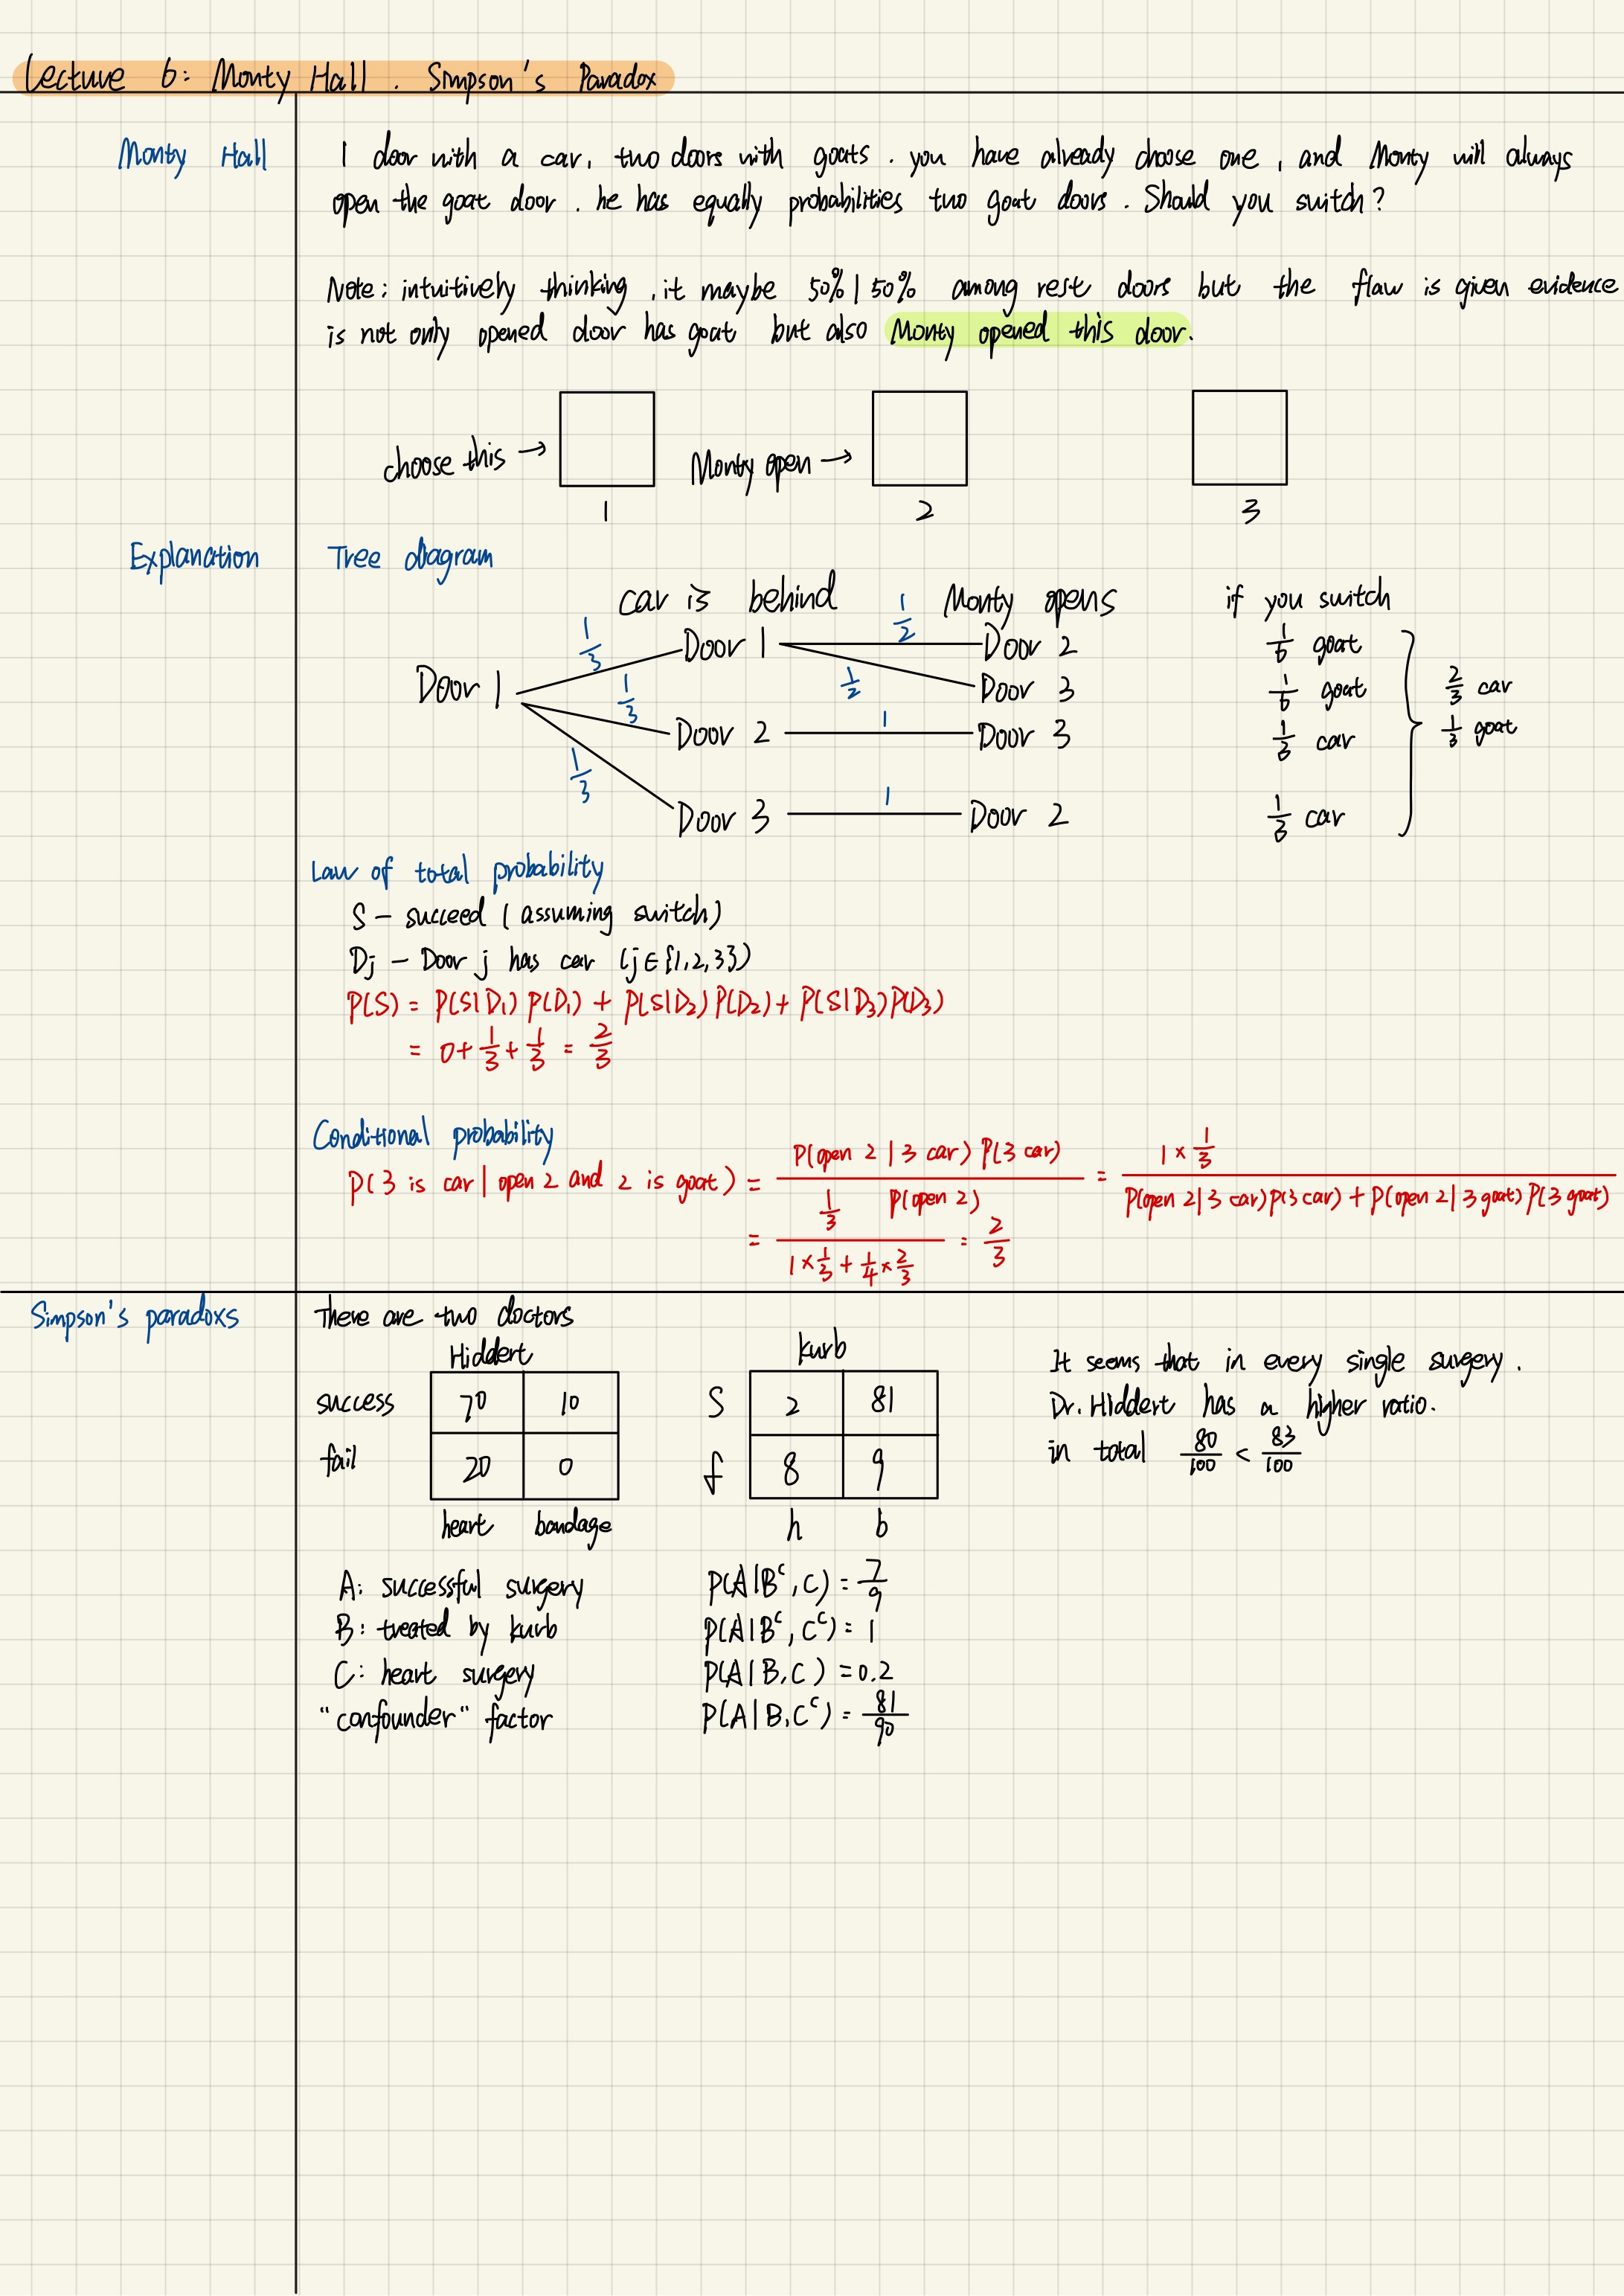 Lecture 6: Monty Hall. Simpson's Paradox
Monty Hall
1 door with a car, two doors with goats. you have already choose one, and Monty will always
open the goat door. he has equally probabilities two goat doors. Should you switch?
Note: intuitively thinking, it maybe 50% | 50% among rest doors but the flaw is given evidence
is not only opened door has goat but also Monty opened this door.
choose this → Monty open →
1 2 3
Explanation
Tree diagram
car is behind Monty opens if you switch
Door 1 1/3 Door 1 1/2 Door 2 1/6 goat
1/2 Door 3 1/6 goat
1/3 Door 2 1 Door 3 1/3 car
1/3 Door 3 1 Door 2 1/3 car
2/3 car
1/3 goat
Law of total probability
S — succeed (assuming switch)
Dj — Door j has car (j∈{1,2,3})
P(S) = P(S|D₁)P(D₁) + P(S|D₂)P(D₂) + P(S|D₃)P(D₃)
= 0 + 1/3 + 1/3 = 2/3
Conditional probability
P(3 is car | open 2 and 2 is goat) = P(open 2 | 3 car) P(3 car) / P(open 2) = 1 × 1/3 / P(open 2 | 3 car)P(3 car) + P(open 2 | 3 goat) P(3 goat)
= 1/3 / 1 × 1/3 + 1/4 × 2/3 = 2/3
Simpson's paradoxs
There are two doctors
Hiddert
success 70 10
fail 20 0
heart bandage
kurb
S 2 81
f 8 9
h b
It seems that in every single surgery.
Dr. Hiddert has a higher ratio.
in total 80/100 < 83/100
A: successful surgery
B: treated by kurb
C: heart surgery
"confounder" factor
P(A|Bᶜ, C) = 7/9
P(A|Bᶜ, Cᶜ) = 1
P(A|B, C) = 0.2
P(A|B, Cᶜ) = 81/90